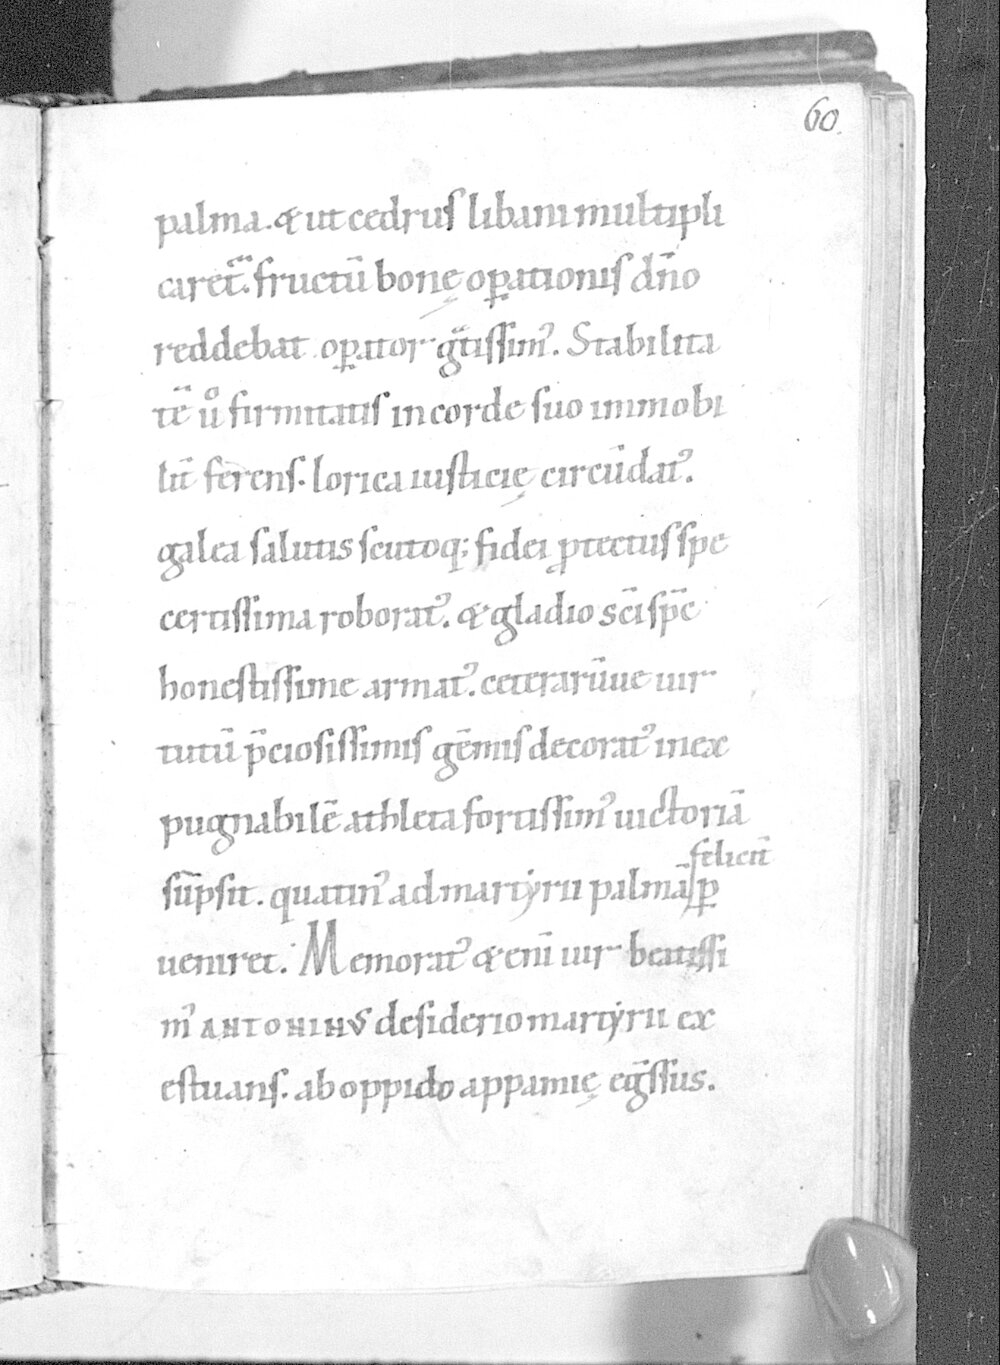 60.
palma. & ut cedrus libani multipli
caret᷒. fructū bonę oꝑationis dn̄o
reddebat oꝑator g̃tissim᾿. Stabilita
tē ů firmitatis in corde suo immobi
lit̄ ferens. lorica iusticię circūdat᾿.
galea salutis scutoq; fidei ꝓtectus spe
certissima roborat᾿. & gladio sc̄i sp̄c
honestissime armat᾿. ceterarūue uir
tutū p̄ciosissimis gēmis decorat᾿ inex
pugnabilē athleta fortissim᾿ uictoriā
felicit̄
sūpsit. quatin᾿ ad martẏrii palmā ꝑ
ueniret. Memorat᾿ & eni᷒ uir beatissi
m᾿ ANTONINVS desiderio martẏrii ex
estuans. ab oppido appamię eg̃ssus.